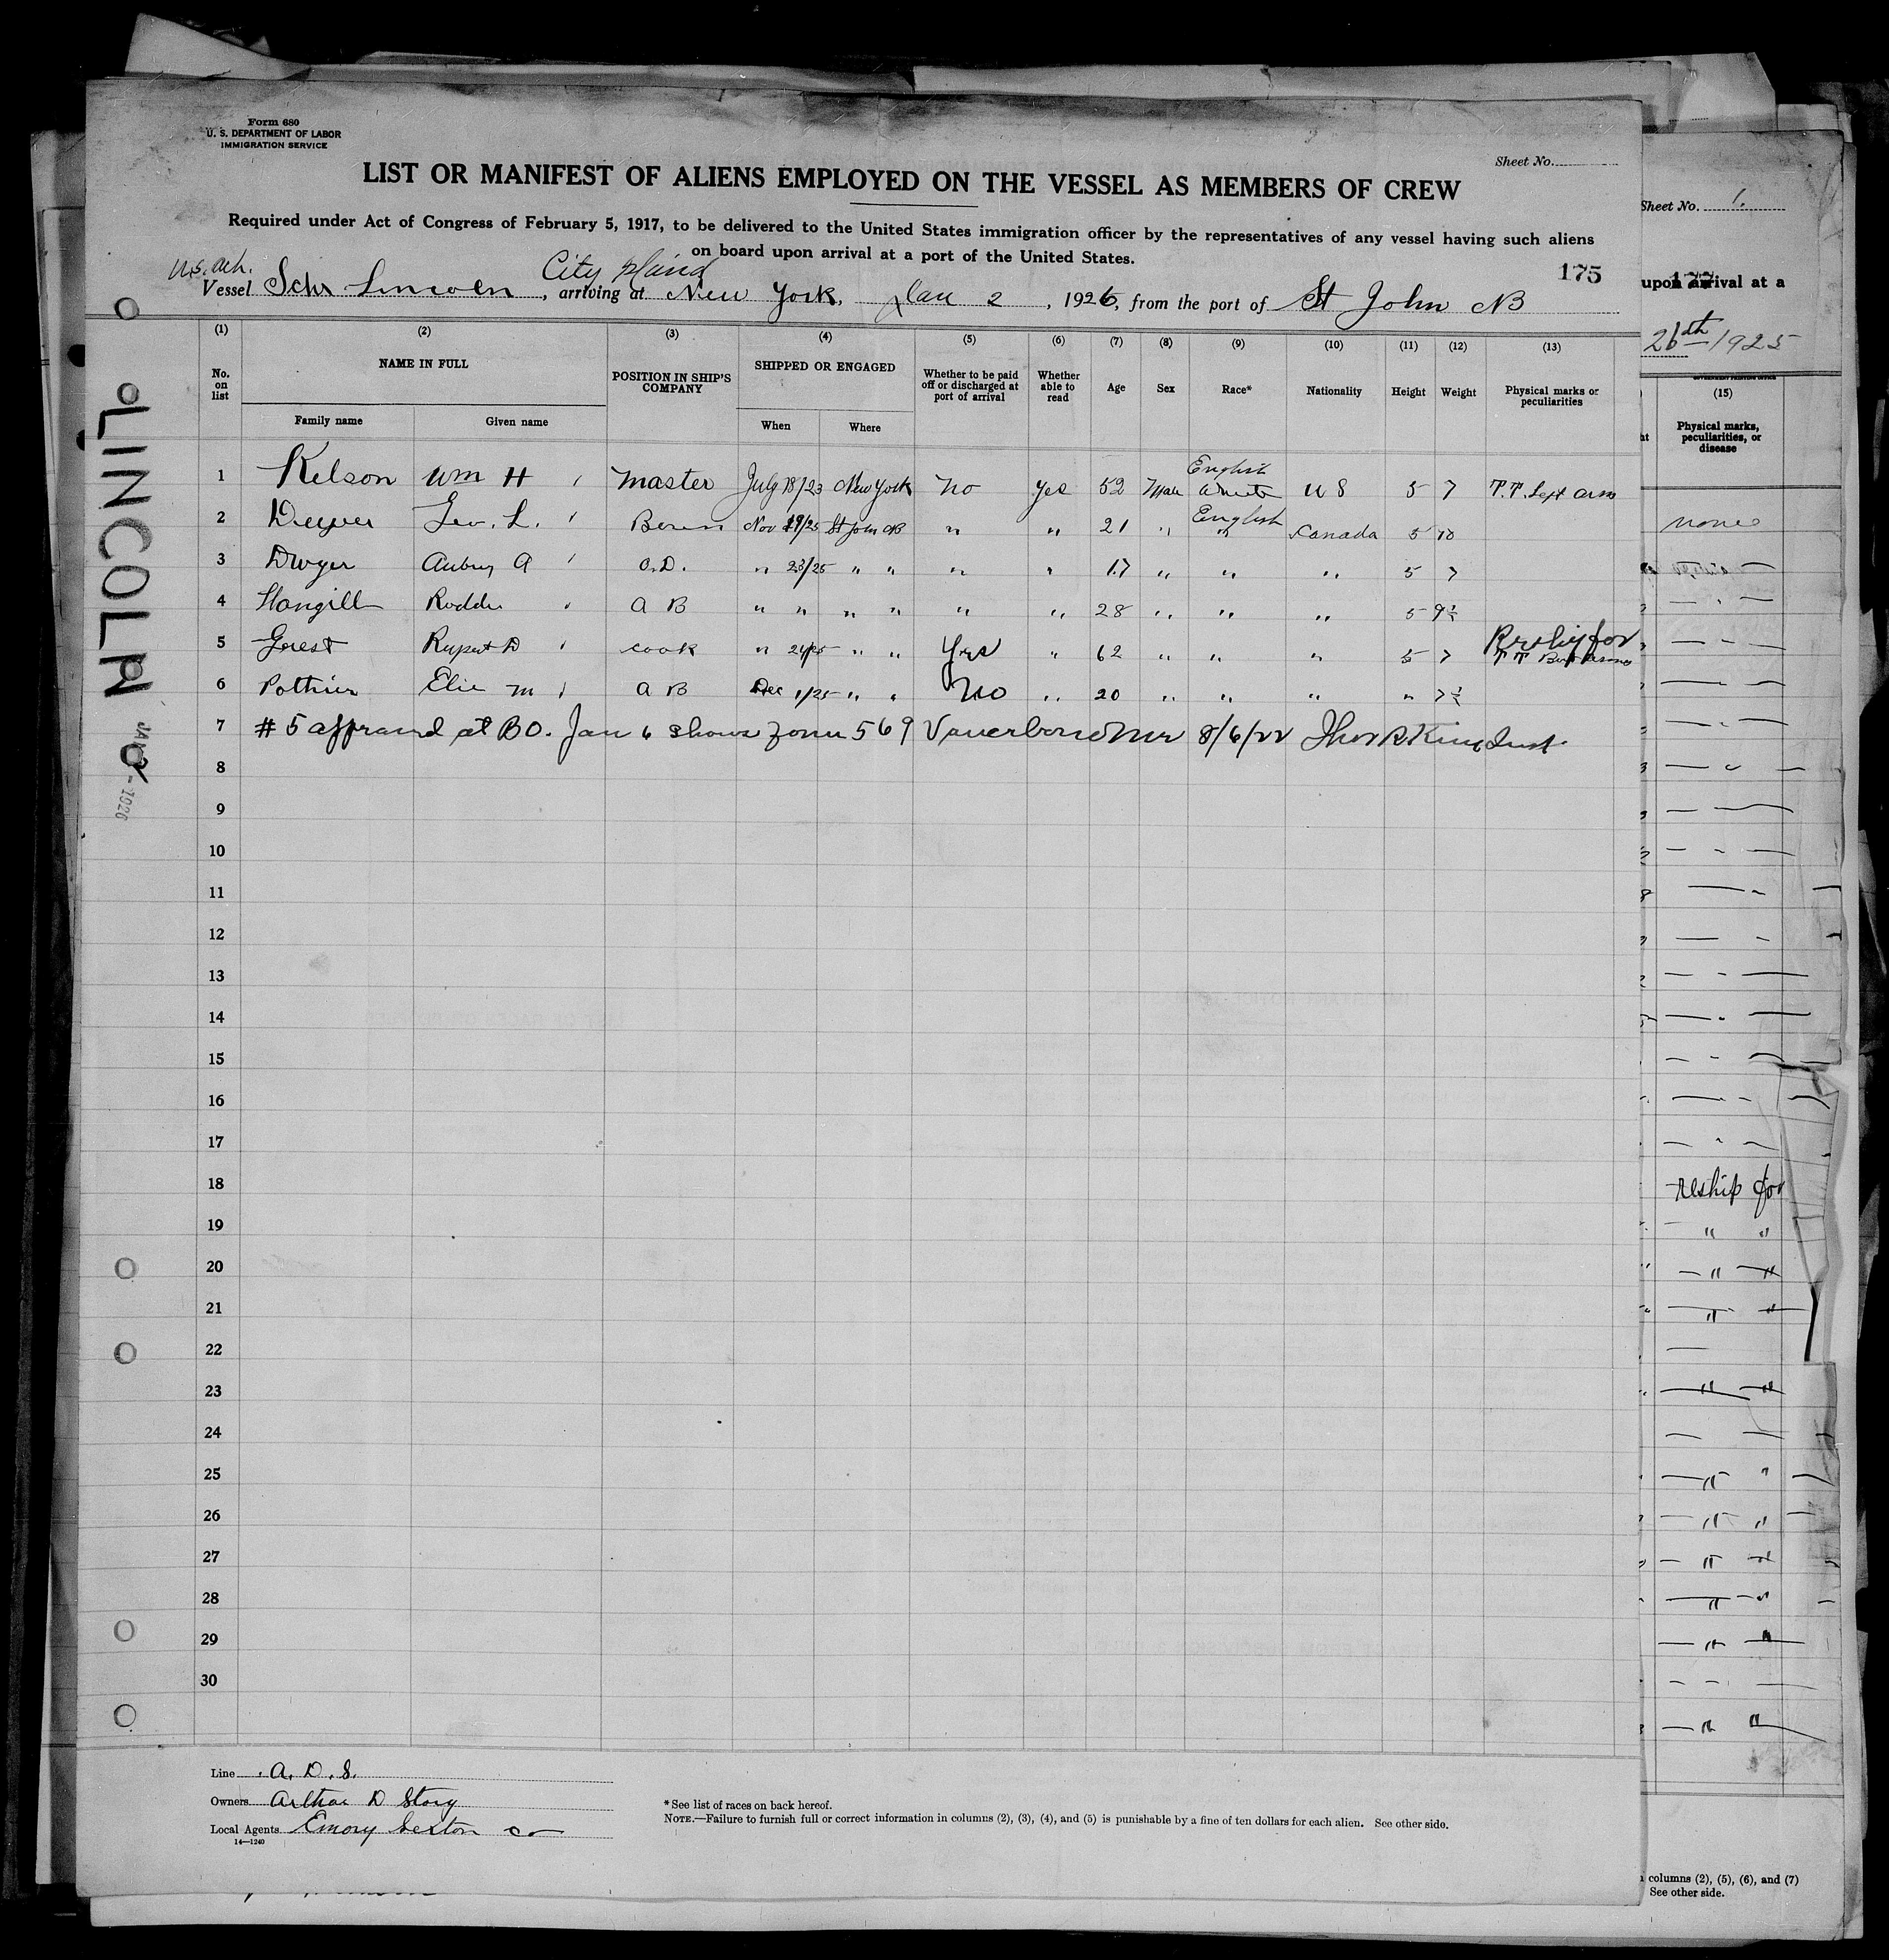 Form 680
U. S. DEPARTMENT OF LABOR
IMMIGRATION SERVICE
Sheet No.
LIST OR MANIFEST OF ALIENS EMPLOYED ON THE VESSEL AS MEMBERS OF CREW
Required under Act of Congress of February 5, 1917, to be delivered to the United States immigration officer by the representatives of any vessel having such aliens
on board upon arrival at a port of the United States.
175
U.S. Sch. City Island
Vessel Schr Lincoln, arriving at New York, Jan 2, 1926, from the port of St John NB
(1) (2) (3) (4) (5) (6) (7) (8) (9) (10) (11) (12) (13)
No. on list NAME IN FULL POSITION IN SHIP'S COMPANY SHIPPED OR ENGAGED Whether to be paid off or discharged at port of arrival Whether able to read Age Sex Race* Nationality Height Weight Physical marks or peculiarities
Family name Given name When Where
English
1 Kelson Wm H Master July 18/23 New York No Yes 52 Male White U S 5 7 T.T. Left arm
English
2 Geo. L. Bosun Nov 19/25 St John NB " " 21 " " Canada 5 10
3 Dwyer Aubrey A O.D. " 23/25 " " " " 17 " " " 5 7
4 A B " " " " " " 28 " " " 5 9½
Reship for
5 Guest Rupert D Cook " 24/25 " " Yes " 62 " " " 5 7 T T Both arms
6 Pothier Elie M A B Dec 1/25 " " No " 20 " " " " 7½
7 # 5 at BO. Jan 6 shows 569 8/6/22 Thos R King Inst.
8
9
10
11
12
13
14
15
16
17
18
19
20
21
22
23
24
25
26
27
28
29
30
Line A. D. S.
Owners Arthur D Story
Local Agents Emory Sexton Co
14—1240
* See list of races on back hereof.
NOTE.—Failure to furnish full or correct information in columns (2), (3), (4), and (5) is punishable by a fine of ten dollars for each alien. See other side.
LINCOLN
1926
Sheet No. 1.
upon arrival at a
26th 1925
(15)
Physical marks, peculiarities, or disease
none
reship for
columns (2), (5), (6), and (7)
See other side.